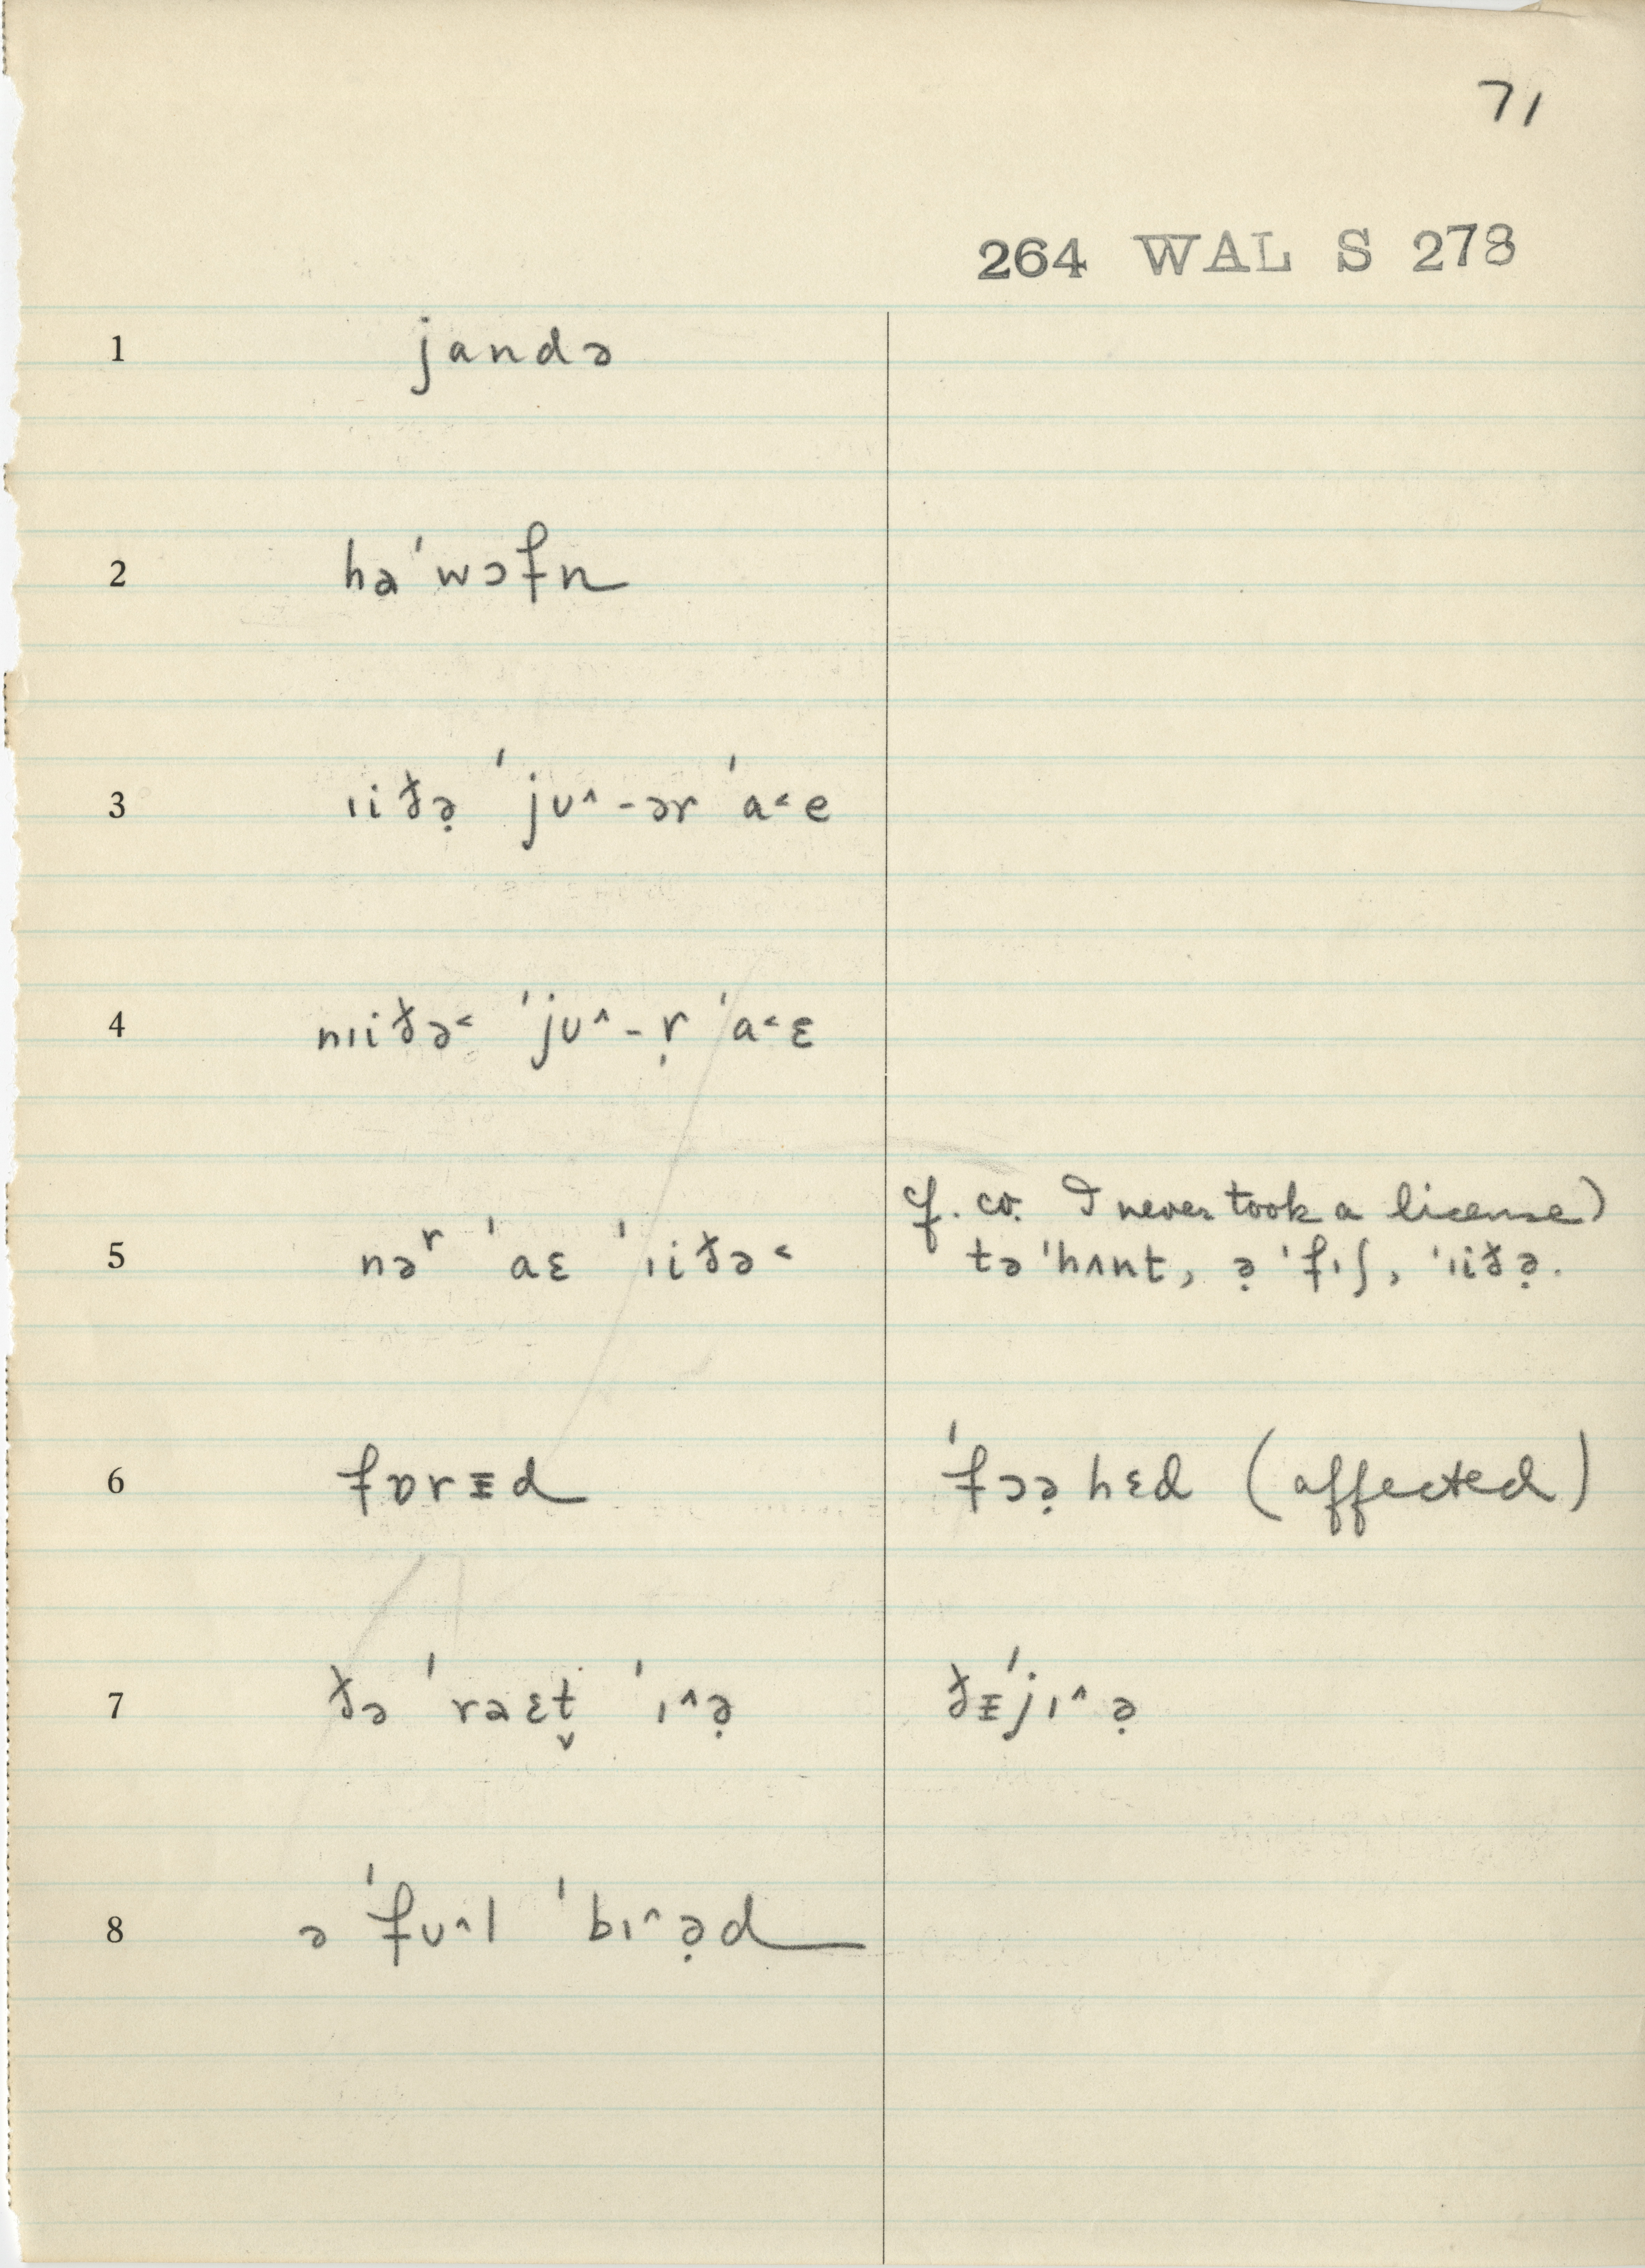 71
264 WAL S 278
1 jandə
2 hə'wɔfn
3 ɪiðə̣ 'jʊ^-ər 'a˂e
4 nɪiðə˂ 'jʊ^-ṛ 'a˂ɛ
5 nəʳ 'aɛ 'ɪiðə˂
cf. cv. I never took a license)
tə 'hʌnt, ə̣ 'fɪʃ, 'ɪiðə̣.
6 fɒrᵻd 'fɔə̣hɛd (affected)
7 ðə 'raɛt̬ 'ɪ^ə̣ ðᵻ'jɪ^ə̣
8 ə 'fʊ^l 'bɪ^ə̣d